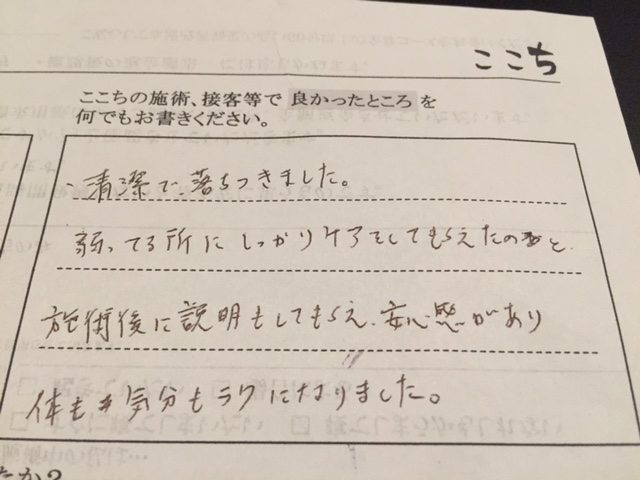 ここち
ここちの施術、接客等で良かったところを
何でもお書きください。
・清潔で、落ちつきました。
弱ってる所にしっかりケアをしてもらえたのと
施術後に説明もしてもらえ、安心感があり
体も気分もラクになりました。
たか?